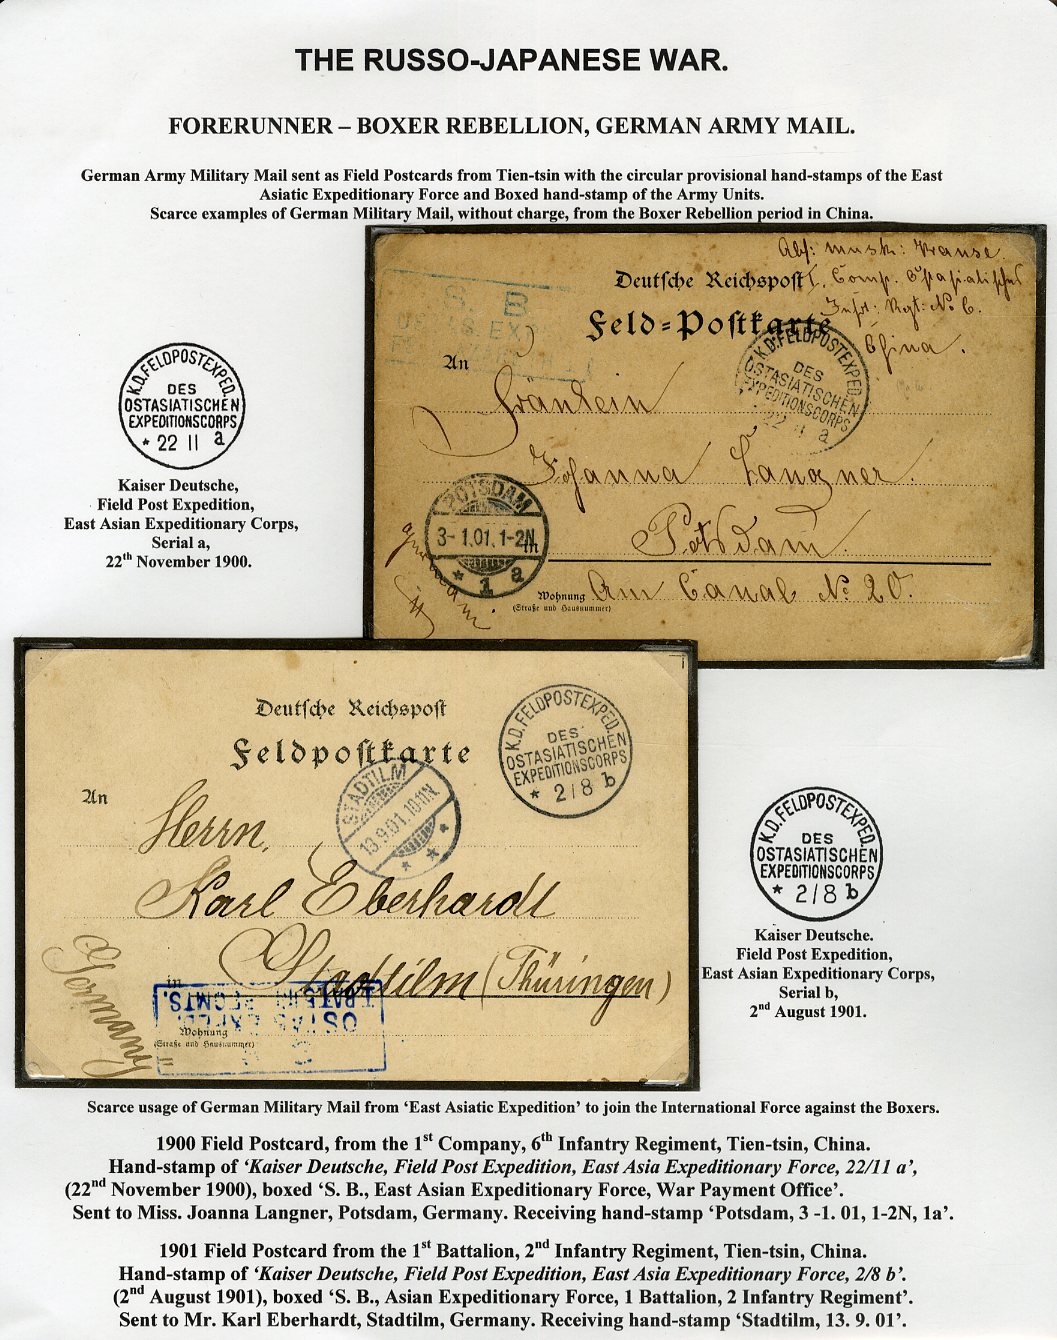 THE RUSSO-JAPANESE WAR.
FORERUNNER – BOXER REBELLION, GERMAN ARMY MAIL.
German Army Military Mail sent as Field Postcards from Tien-tsin with the circular provisional hand-stamps of the East
Asiatic Expeditionary Force and Boxed hand-stamp of the Army Units.
Scarce examples of German Military Mail, without charge, from the Boxer Rebellion period in China.
Abs: Musk: Krause
I. Comp. Ostasiatisches
Infr: Rgt: No 6.
China.
S. B.
Deutsche Reichspost
Feld=Postkarte
An
Fräulein
Johanna Langner.
Potsdam.
in
Wohnung Am Canal No 20.
(Straße und Hausnummer)
K.D.FELDPOSTEXPED.
DES
OSTASIATISCHEN
EXPEDITIONSCORPS
22 11 a
POTSDAM
3-1.01.1-2N
* 1 a
K.D.FELDPOSTEXPED.
DES
OSTASIATISCHEN
EXPEDITIONSCORPS
* 22 11 a
Kaiser Deutsche,
Field Post Expedition,
East Asian Expeditionary Corps,
Serial a,
22th November 1900.
Deutsche Reichspost
Feldpostkarte
An
Herrn
Karl Eberhardt
Stadtilm (Thüringen)
in
Wohnung
(Straße und Hausnummer)
Germany
K.D.FELDPOSTEXPED.
DES
OSTASIATISCHEN
EXPEDITIONSCORPS
* 2/8 b
STADTILM
13.9.01.10-11N.
* * *
K.D.FELDPOSTEXPED.
DES
OSTASIATISCHEN
EXPEDITIONSCORPS
* 2/8 b
Kaiser Deutsche.
Field Post Expedition,
East Asian Expeditionary Corps,
Serial b,
2nd August 1901.
Scarce usage of German Military Mail from ‘East Asiatic Expedition’ to join the International Force against the Boxers.
1900 Field Postcard, from the 1st Company, 6th Infantry Regiment, Tien-tsin, China.
Hand-stamp of ‘Kaiser Deutsche, Field Post Expedition, East Asia Expeditionary Force, 22/11 a’,
(22nd November 1900), boxed ‘S. B., East Asian Expeditionary Force, War Payment Office’.
Sent to Miss. Joanna Langner, Potsdam, Germany. Receiving hand-stamp ‘Potsdam, 3 -1. 01, 1-2N, 1a’.
1901 Field Postcard from the 1st Battalion, 2nd Infantry Regiment, Tien-tsin, China.
Hand-stamp of ‘Kaiser Deutsche, Field Post Expedition, East Asia Expeditionary Force, 2/8 b’.
(2nd August 1901), boxed ‘S. B., Asian Expeditionary Force, 1 Battalion, 2 Infantry Regiment’.
Sent to Mr. Karl Eberhardt, Stadtilm, Germany. Receiving hand-stamp ‘Stadtilm, 13. 9. 01’.